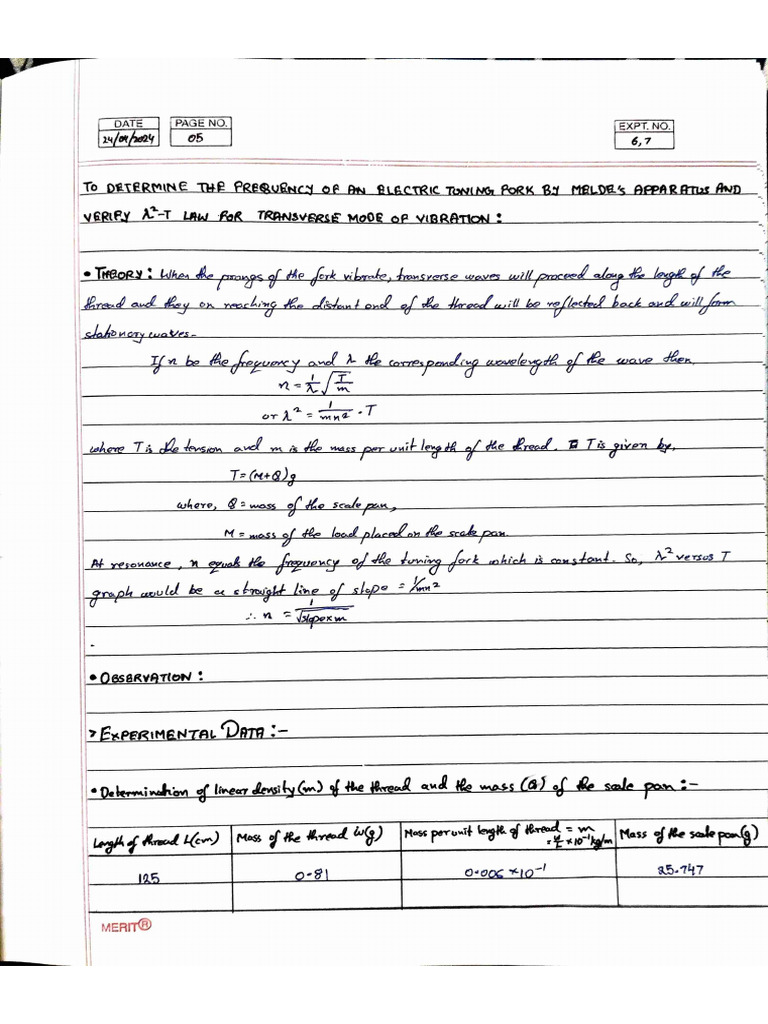 DATE
24/04/2024
PAGE NO.
05
EXPT. NO.
6,7
TO DETERMINE THE FREQUENCY OF AN ELECTRIC TUNING FORK BY MELDE'S APPARATUS AND
VERIFY λ²-T LAW FOR TRANSVERSE MODE OF VIBRATION:
• THEORY: When the prongs of the fork vibrate, transverse waves will proceed along the length of the
thread and they on reaching the distant end of the thread will be reflected back and will form
stationary waves.
If n be the frequency and λ the corresponding wavelength of the wave then,
n = 1/λ √(T/m)
or λ² = 1/mn² · T
where T is the tension and m is the mass per unit length of the thread. T is given by,
T = (M+Q)g
where, Q = mass of the scale pan,
M = mass of the load placed on the scale pan.
At resonance, n equals the frequency of the tuning fork which is constant. So, λ² versus T
graph would be a straight line of slope = 1/mn²
∴ n = 1/√(slope×m)
• OBSERVATION:
> EXPERIMENTAL DATA:-
• Determination of linear density (m) of the thread and the mass (Q) of the scale pan:-
Length of thread L(cm)
Mass of the thread W(g)
Mass per unit length of thread = m
= W/L ×10⁻¹ kg/m
Mass of the scale pan (g)
125
0.81
0.006 × 10⁻¹
25.747
MERIT®